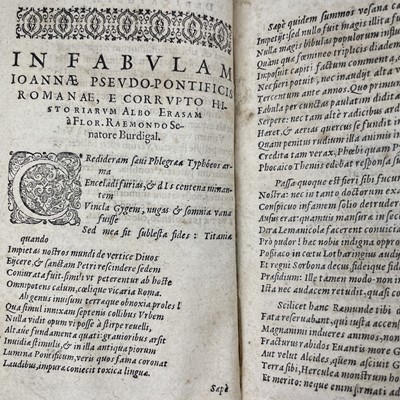 IN FABVLAM
IOANNÆ PSEVDO-PONTIFICIS
ROMANAE, E CORRVPTO HI-
STORIARVM ALBO ERASAM
à FLOR. RAEMONDO Se-
natore Burdigal.
CRedideram sævi Phlegræa Typhëos ar
ma
Enceladi furias, & dis centena minan-
tem
Vincla Gygem, nugas & somnia vana
fuisse
Sed mea sit sublesta fides: Titania
quando
Impietas nostros mundi de vertice Diuos
Eijcere, & sanctam Petri rescindere sedem
Coniurata fuit: simul vt peterent ab hoste
Omnipotens cælum, cælique vicaria Roma.
Ahgenus inuisum terræque obnoxia proles!
Qua simul innixam septenis collibus Vrbem
Nulla vidit opum vi posse à stirpe reuelli,
Altaue fundament a quati: grauioribus arsit
Inuidiæ stimulis, & in illa antiqua piorum
Lumina Pontificum, veris quos fama coronat
Laudibus, impura coniecit toxica linguæ.
Sapè
Sapè quidem summos vesana ca
Impetijt: sed nullo fuit magis illit a fu
Nulla magis bibulas popularum influxi
Quàm quæ fœmineo triplicis diadema
Imposuit capiti: factum tamen acre
Nesciere potuit, nec inaudijt alta v
Tercentum ante annos. Quo primum
Fabula per cunctas pestis se prodidit
Errorem traxere nouum: sic serpere
Hæret, & aerias quercus se fundit in
Quàm penitus rudium illis animis
Credita tam verax, Phœbi quàm pr
Phocaico Themis edebat responsa su
Passa quoque est fieri sibi fucu
Posteritas: nec in tanto doctorum exa
Conspicuo infamem solio detruder
Ausus erat: quamuis mansura in secu
Dira Lemanicolæ facerent conuitia
Prò pudor! hæc nobis indigna opprobr
Psittaco in cœtu Lotharingius audijt
Et regni Sorbona decus fideique fidu
Parisijs: Illæ tamen modo-non in
Icta nec audacem retudit, quid agat
Scilicet hanc Raimunde tibi d
Fata reseruabant, qui iusta accens
Magnanimi indueres animos, nou
Fracturus rabidos Euantis more G
Aut velut Alcides, quem ascijt Gi
Terra sibi, Herculea monstra hæ
Et merito: neque enim diuina